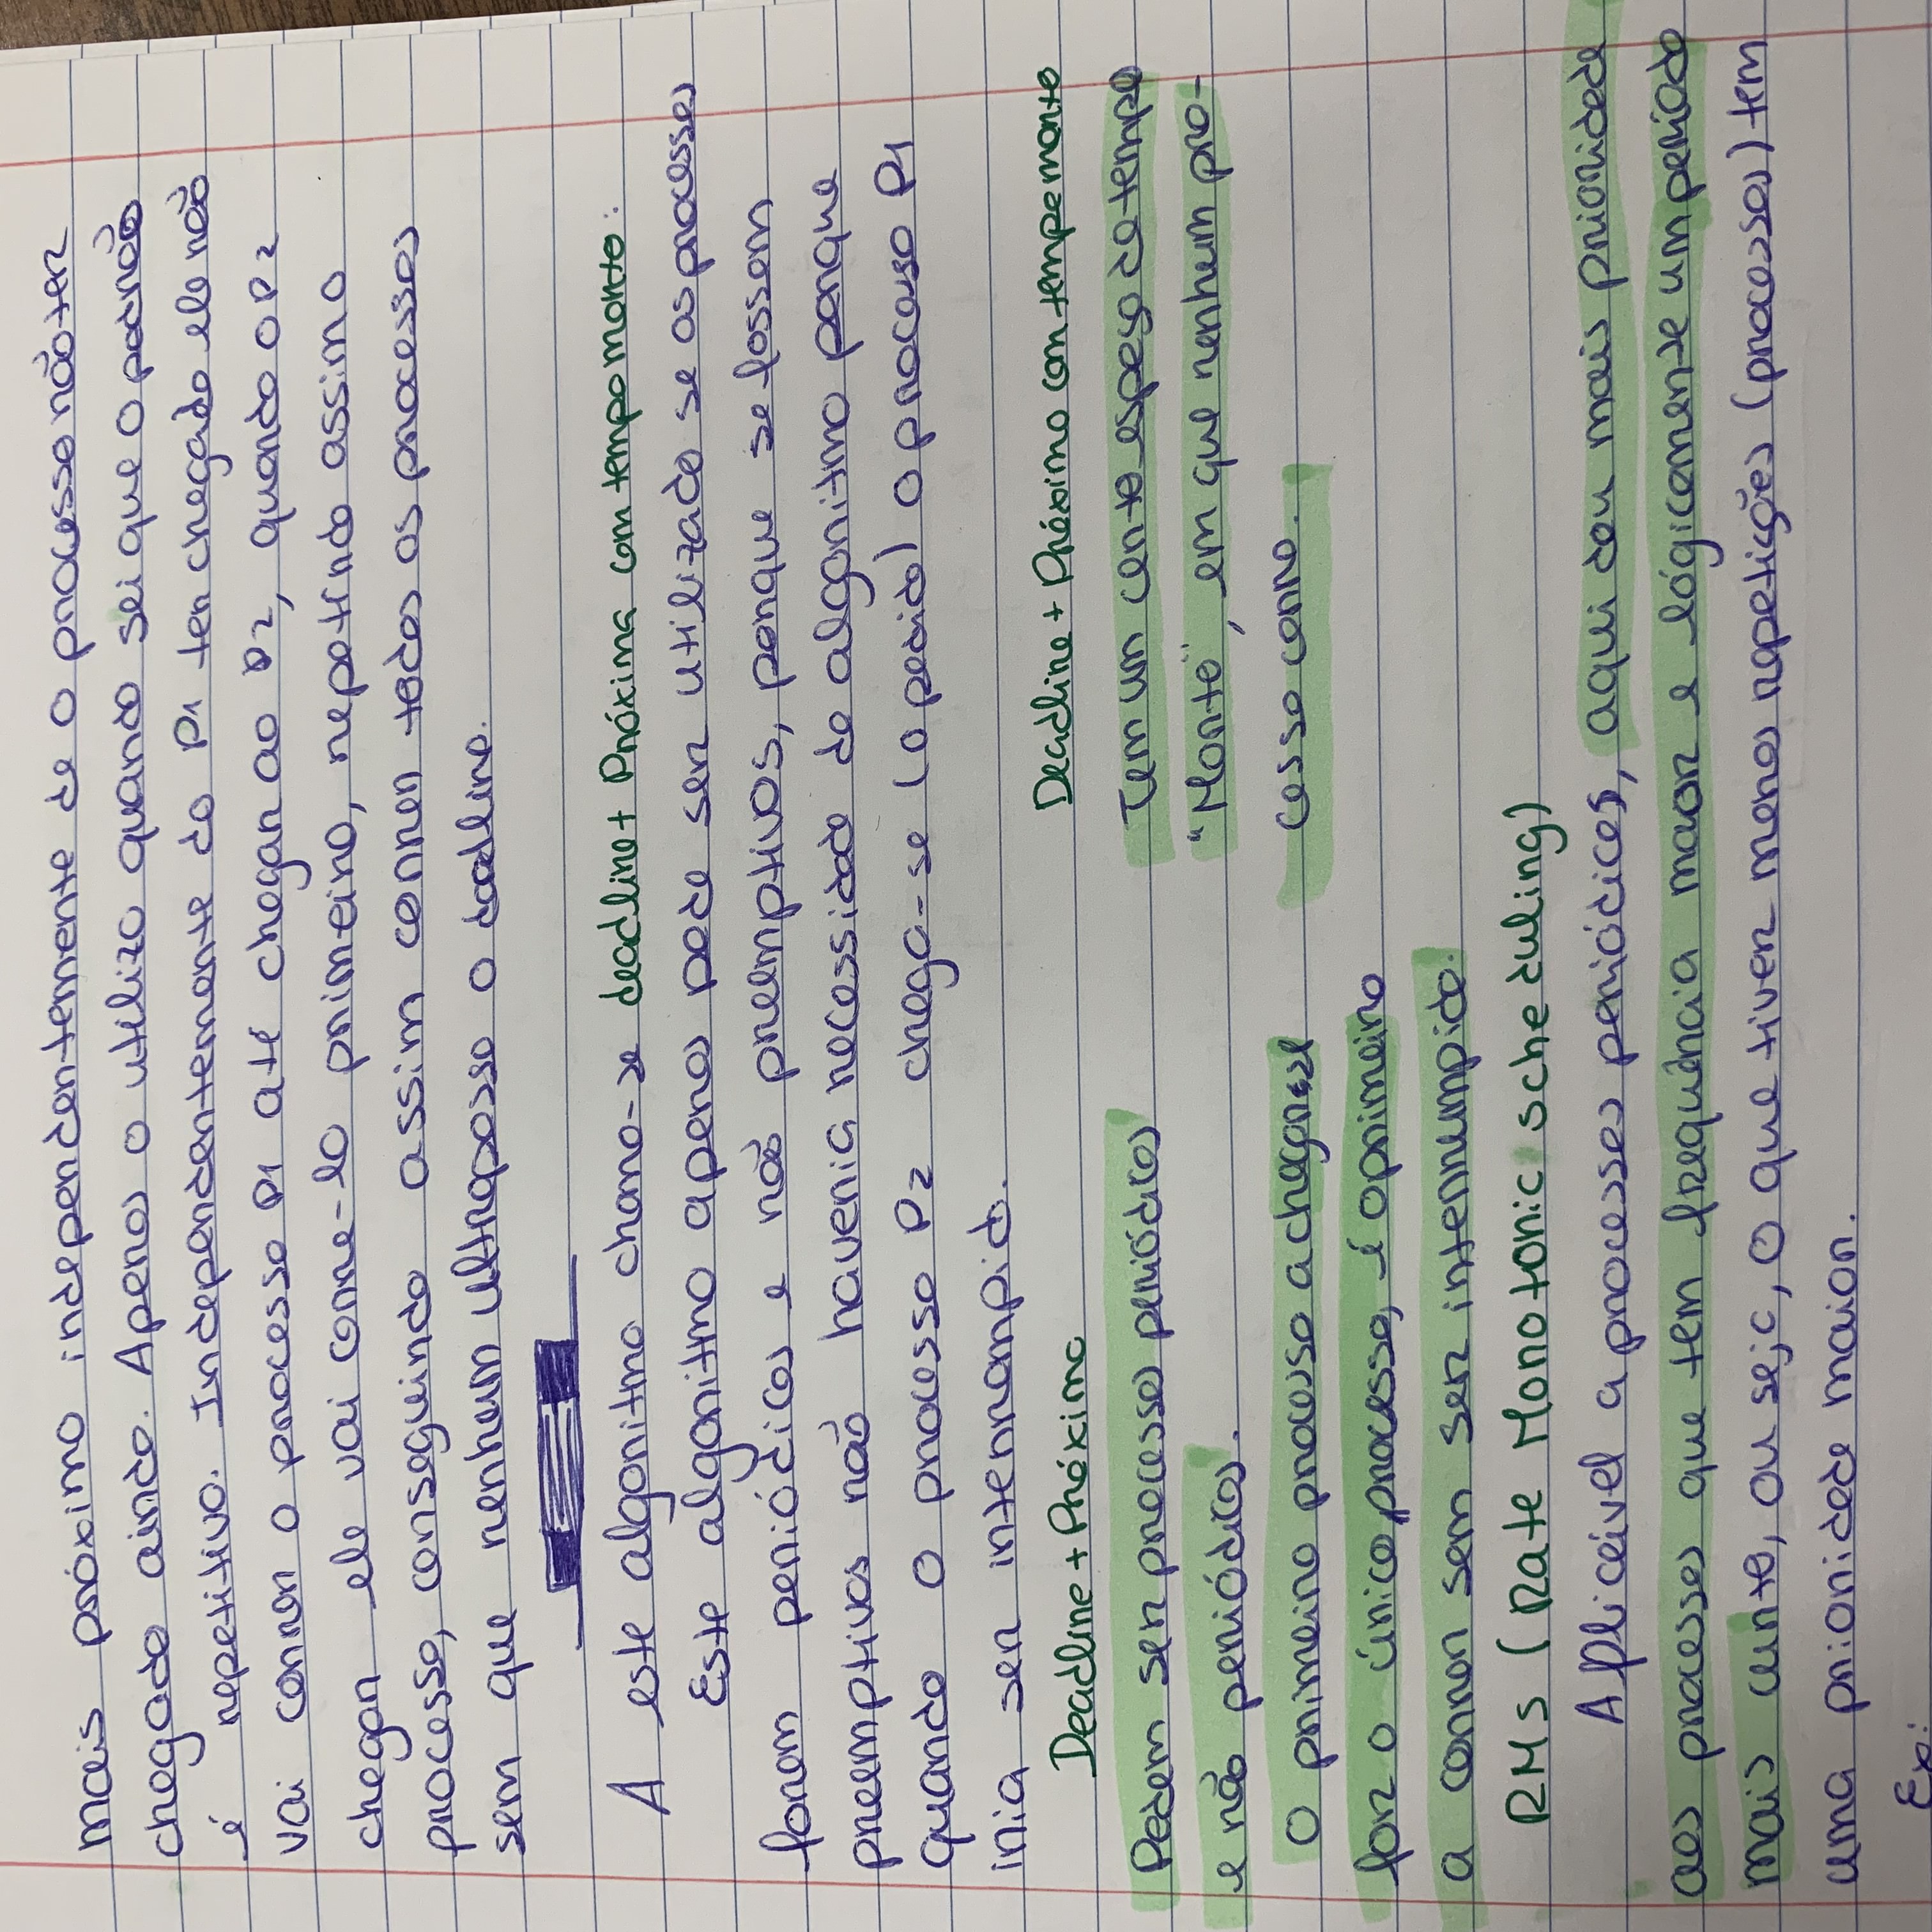 mais próximo independentemente de o processo não ter
chegado ainda. Apenas o utilizo quando sei que o padrão
é repetitivo. Independentemente do P1 ter chegado ele não
vai correr o processo P1 até chegar ao P2, quando o P2
chegar ele vai corre-lo primeiro, repetindo assim o
processo, conseguindo assim correr todos os processos
sem que nenhum ultrapasse o deadline.
A este algoritmo chama-se deadline + Próxima com tempo morto:
Este algoritmo apenas pode ser utilizado se os processos
forem periódicos e não preemptivos, porque se fossem
preemptivos não haveria necessidade do algoritmo porque
quando o processo P2 chega-se (o pedido) o processo P1
iria ser interrompido.
Deadline + Próximo
Deadline + Próximo com tempo morto
Podem ser processos periódicos
e não periódicos.
O primeiro processo a chegar se
for o único processo, é o primeiro
a correr sem ser interrumpido.
Tem um certo espaço de tempo
"Morto", em que nenhum pro-
cesso corre.
RMS (Rate Monotonic scheduling)
Aplicável a processos periódicos, aqui dou mais prioridade
aos processos que tem frequência maior e lógicamente um periodo
mais curto, ou seja, o que tiver menos repetições (processos) tem
uma prioridade maior.
Ex: